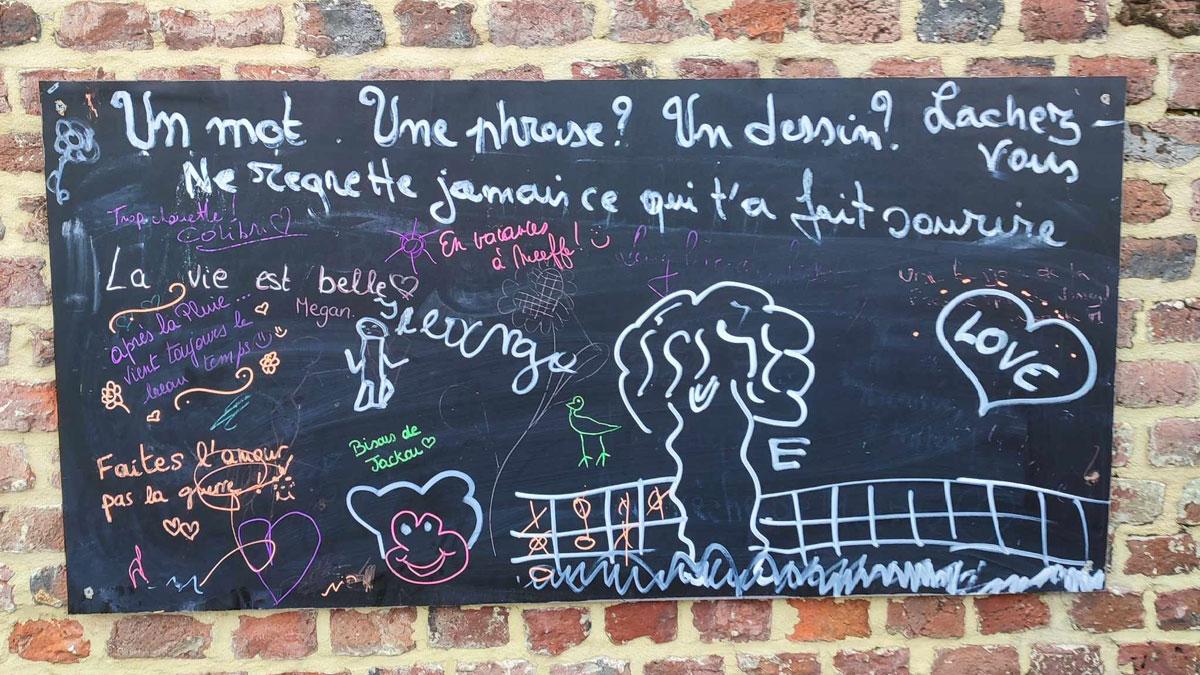 Un mot. Une phrase? Un dessin? Lachez-
vous
Ne regrette jamais ce qui t'a fait sourire
Trop chouette!
Colibri
En vacances
à Meeffe!
La vie est belle
Megan.
après la Pluie...
vient toujours le
beau temps
LOVE
Bisous de
Jackou
E
Faites l'amour
pas la guerre!